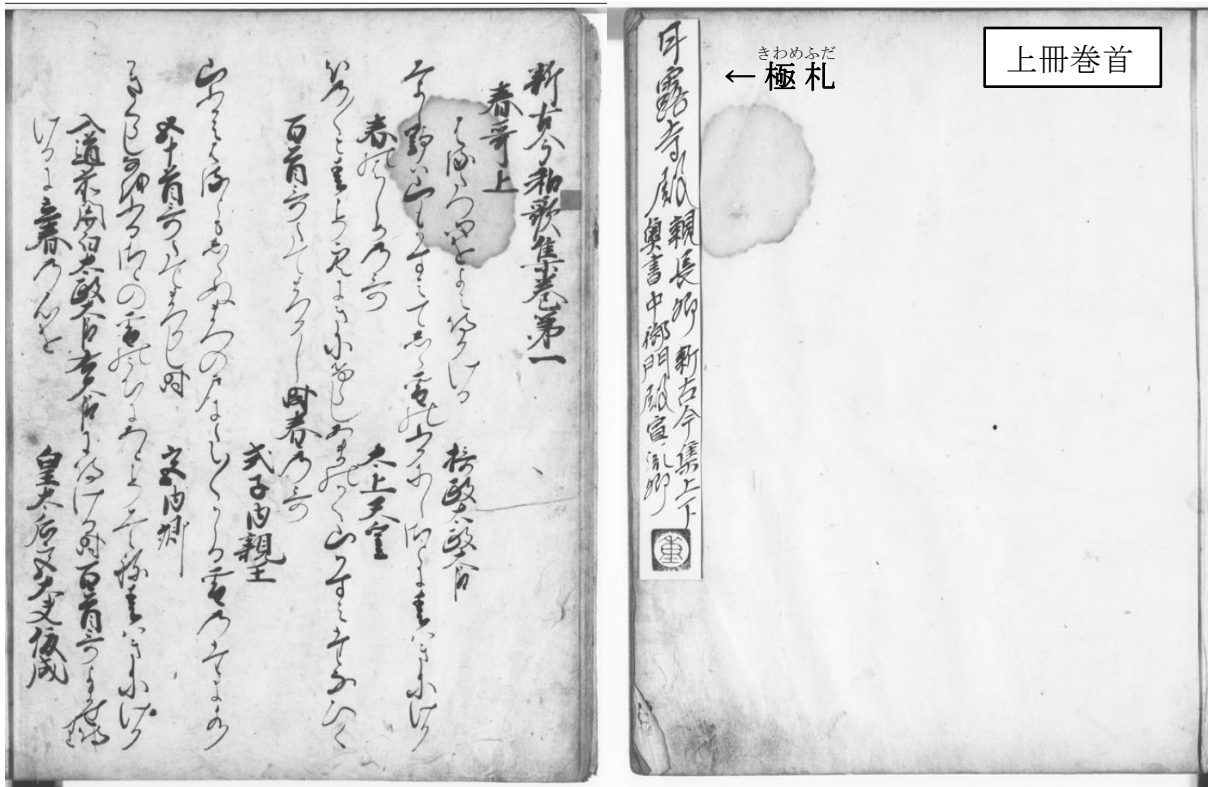 上冊巻首
きわめふだ
←極札
甘露寺殿親長卿 新古今集上下
奥書中御門殿宣胤卿
重
新古今和歌集巻第一
春哥上
はるたつ心をよみ侍ける
摂政太政大臣
みよし野は山もかすみてしら雪のふりにし里に春はきにけり
春のはしめの哥
太上天皇
ほのゝゝと春こそ空にきにけらしあまのかく山かすみたなひく
百首哥たてまつりし時春の哥
式子内親王
山ふかみ春ともしらぬまつの戸にたえゝゝかゝる雪の玉水
五十首哥たてまつりし時
宮内卿
かきくらし猶ふる里の雪のうちにあとこそみえね春はきにけり
入道前関白太政大臣右大臣に侍ける時百首哥よませ侍
けるに立春の心を
皇太后宮大夫俊成